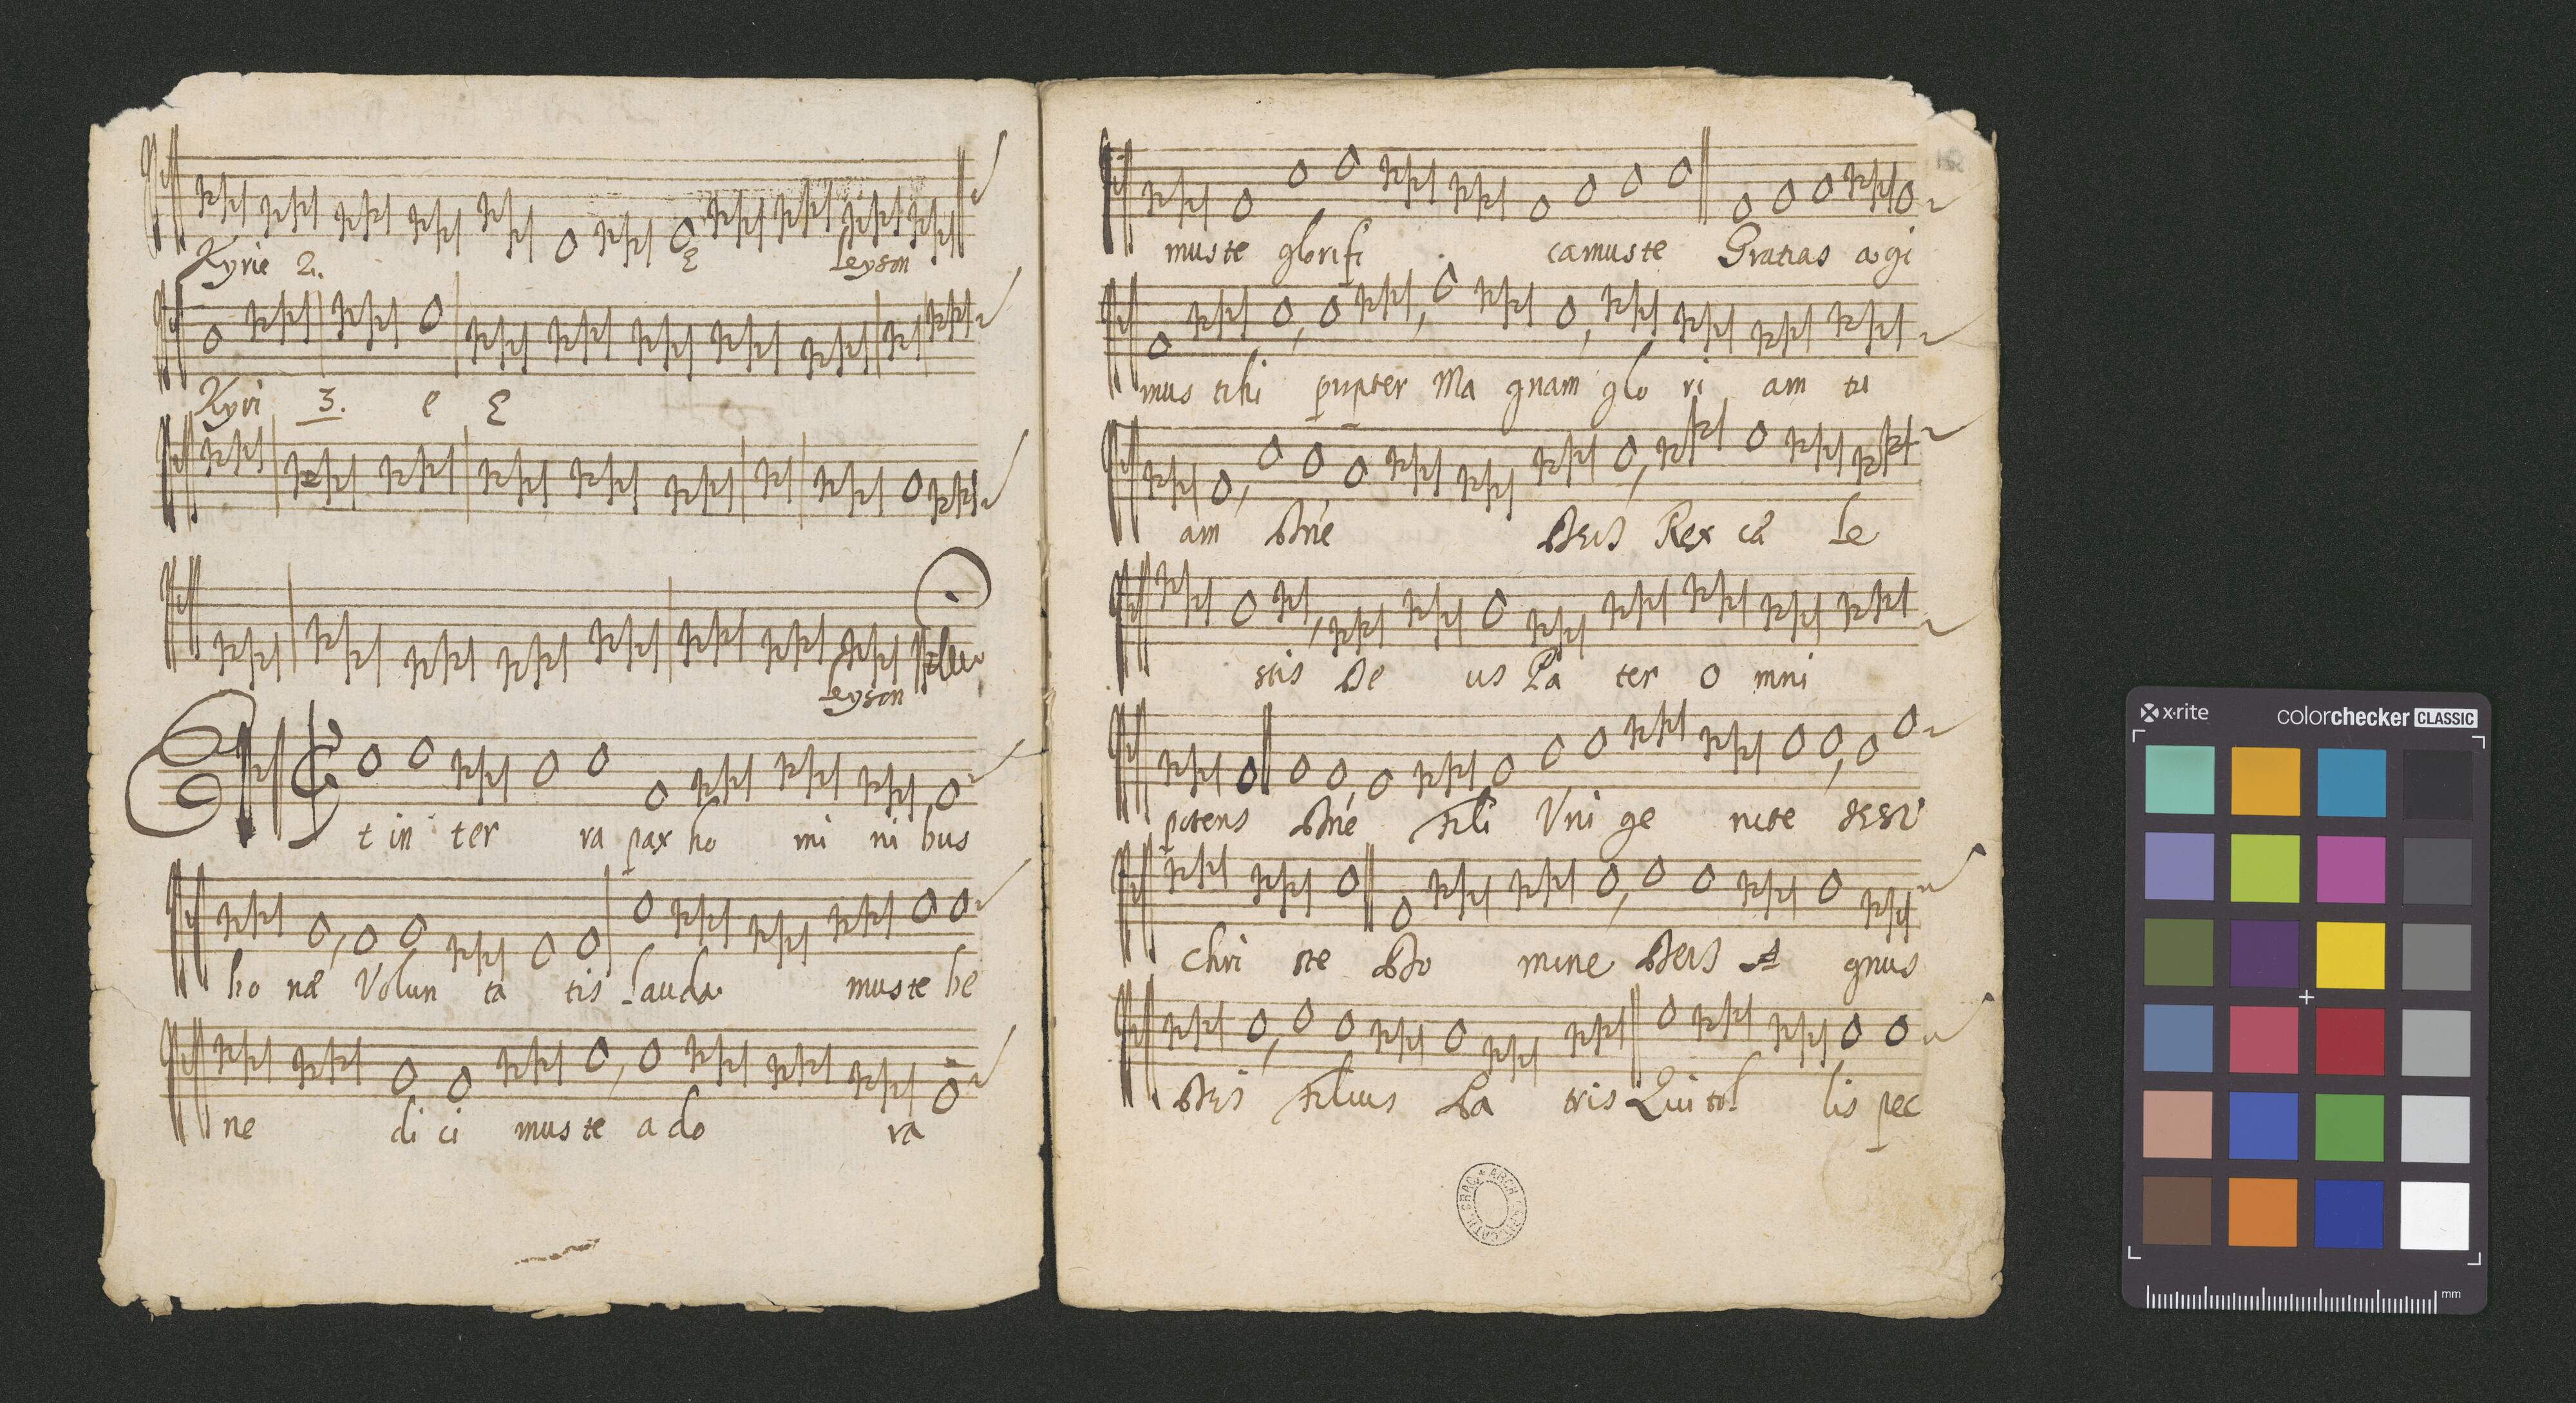 Kyrie 2. E leyson
Kyri 3. e E
leyson
Et in ter ra pax ho mi ni bus
bo næ Volun ta tis lauda muste be
ne di ci muste ado ra
muste glorifi camuste Gratias agi
mus tibi propter Ma gnam glo ri am tu
am Dñe Deus Rex cæ le
stis De us Pa ter O mni
potens Dñe Fili Vni ge nite Jesu
Chri ste Do mine Deus A gnus
Dei Filius Pa tris Qui tol lis pec
x-rite colorchecker CLASSIC
mm